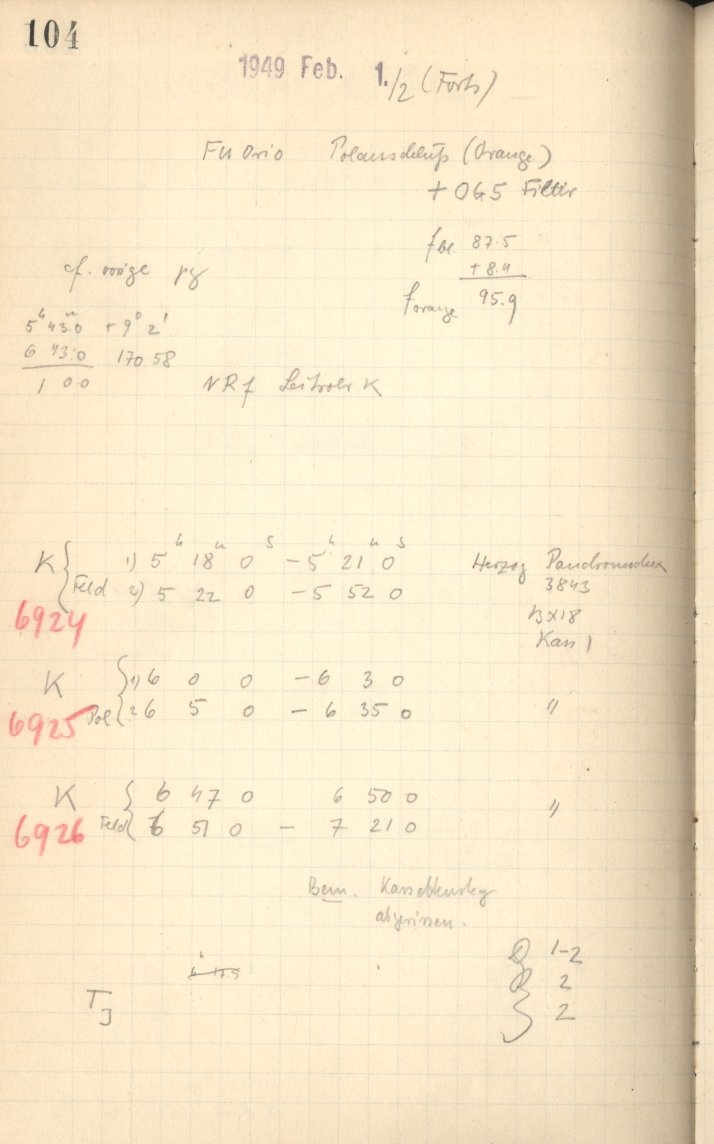 104
1949 Feb. 1./2 (Forts)
FU Orio Polanschluß (Orange)
+ OG5 Filter
f bl. 87.5
+ 8.4
f orange 95.9
cf. vorige pg
5h 43m.0 + 9° 2'
6 43.0 170 58
1 00
NRf Leitrohr K
K { 1) 5h 18m 0s – 5h 21m 0s Herzog Panchromodux
Feld 2) 5 22 0 – 5 52 0 3843
6924 B x 18
Kass 1
K { 1) 6 0 0 – 6 3 0
6925 Pol { 2 6 5 0 – 6 35 0 "
K { 6 47 0 6 50 0 "
6926 Feld { 6 51 0 – 7 21 0
Bem. Kassettensteg
abgerissen.
Q 1-2
R 2
S 2
TJ